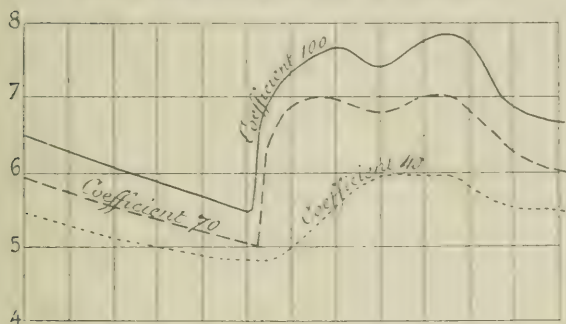 8
Coefficient 100
7
6
Coefficient 70
Coefficient 40
5
4